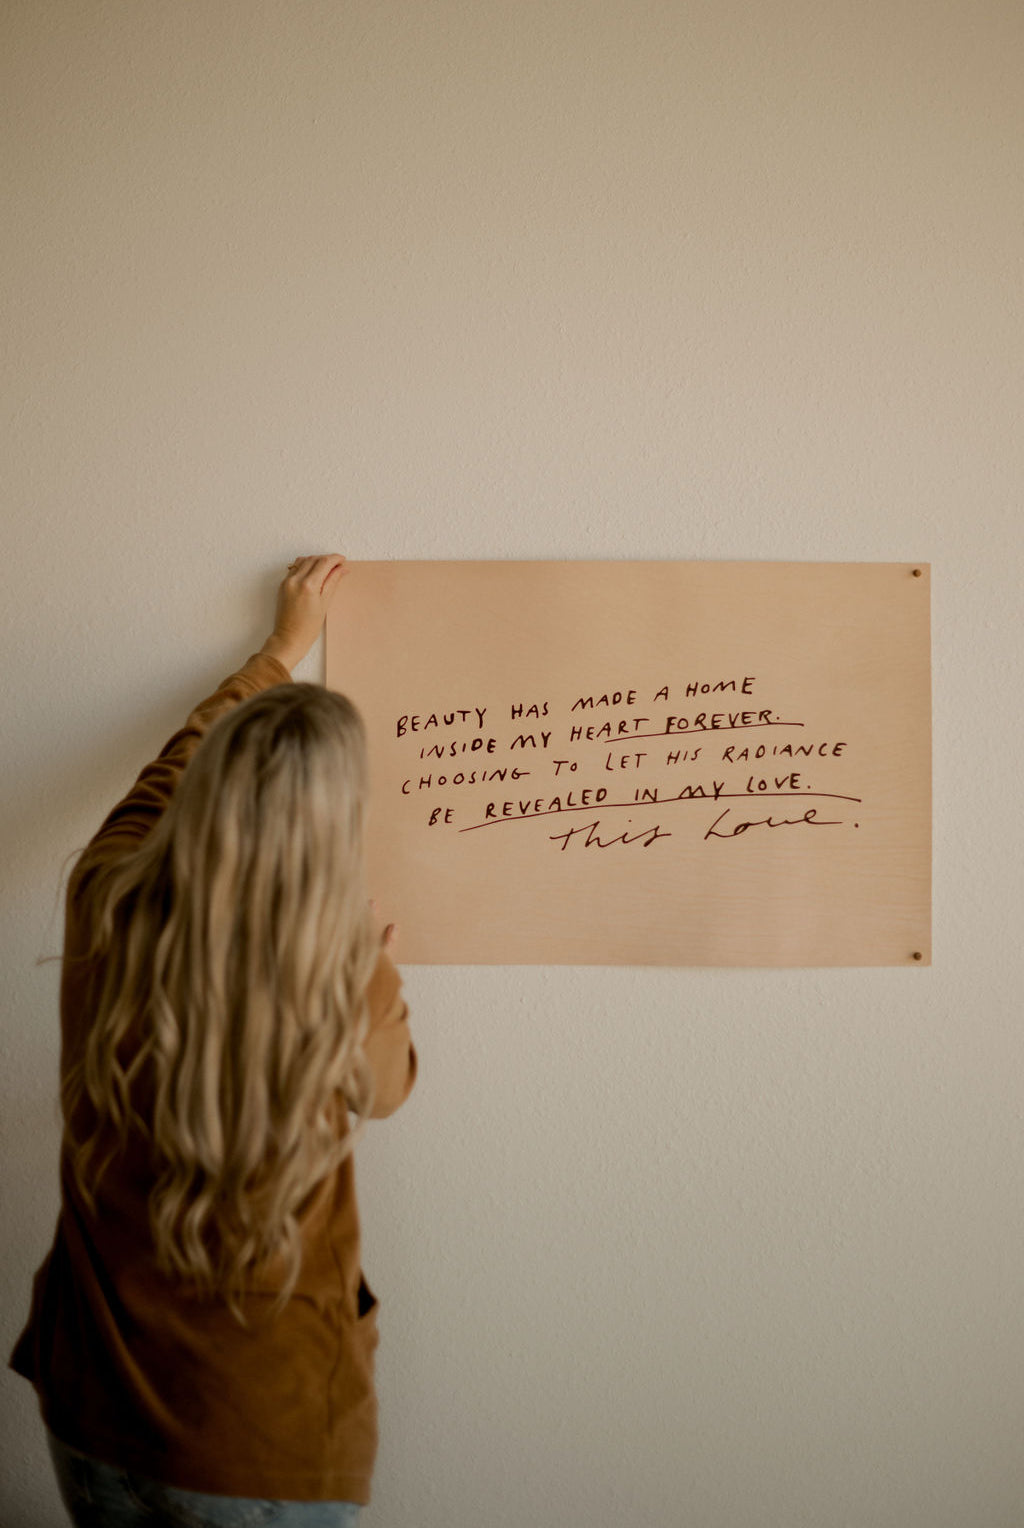 BEAUTY HAS MADE A HOME
INSIDE MY HEART FOREVER.
CHOOSING TO LET HIS RADIANCE
BE REVEALED IN MY LOVE.
this Love.